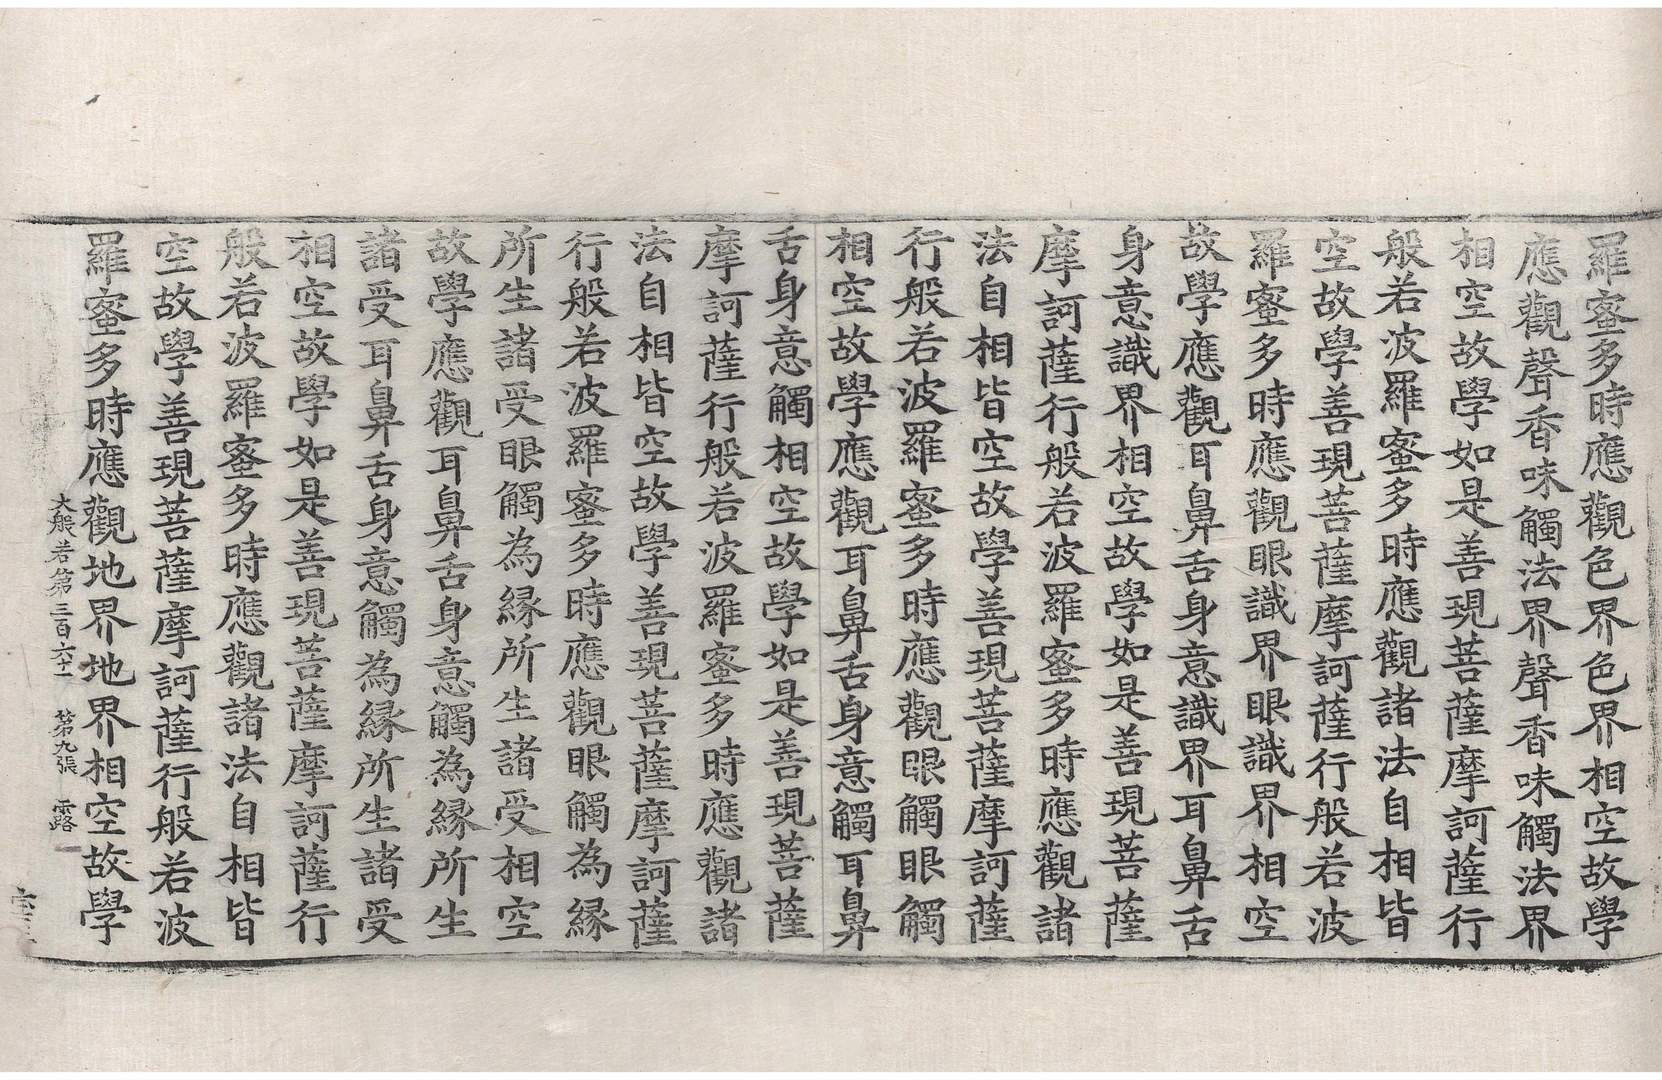 羅蜜多時應觀色界色界相空故學
應觀聲香味觸法界聲香味觸法界
相空故學如是善現菩薩摩訶薩行
般若波羅蜜多時應觀諸法自相皆
空故學善現菩薩摩訶薩行般若波
羅蜜多時應觀眼識界眼識界相空
故學應觀耳鼻舌身意識界耳鼻舌
身意識界相空故學如是善現菩薩
摩訶薩行般若波羅蜜多時應觀諸
法自相皆空故學善現菩薩摩訶薩
行般若波羅蜜多時應觀眼觸眼觸
相空故學應觀耳鼻舌身意觸耳鼻
舌身意觸相空故學如是善現菩薩
摩訶薩行般若波羅蜜多時應觀諸
法自相皆空故學善現菩薩摩訶薩
行般若波羅蜜多時應觀眼觸為緣
所生諸受眼觸為緣所生諸受相空
故學應觀耳鼻舌身意觸為緣所生
諸受耳鼻舌身意觸為緣所生諸受
相空故學如是善現菩薩摩訶薩行
般若波羅蜜多時應觀諸法自相皆
空故學善現菩薩摩訶薩行般若波
羅蜜多時應觀地界地界相空故學
大般若第三百六十一 第九張 露